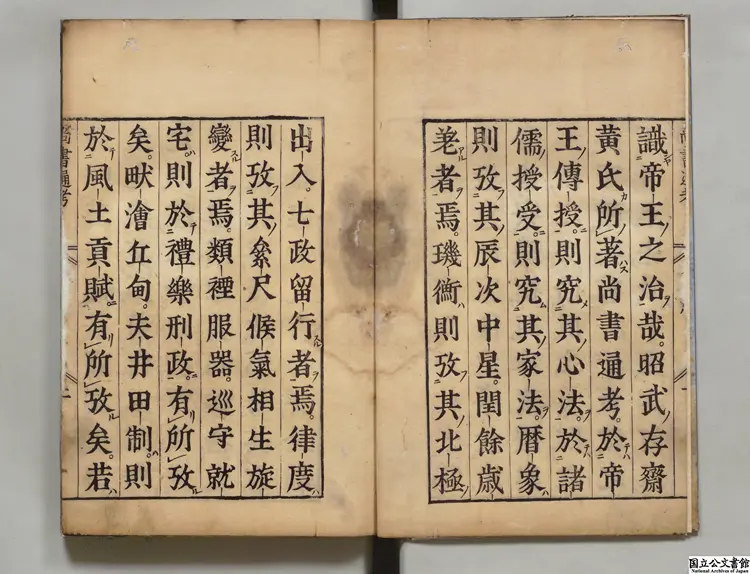 識帝王之治哉。昭武存齋
黄氏所著尚書通考。於帝
王傳授。則究其心法。於諸
儒授受。則究其家法。暦象
則攷其辰次中星。閏餘歳
差者焉。璣衡則攷其北極
出入。七政留行者焉。律度
則攷其絫尺候氣相生旋
變者焉。類禋服器。巡守就
宅。則於禮樂刑政。有所攷
矣。畎澮丘甸。夫井田制。則
於風土貢賦。有所攷矣。若
尚書通考
国立公文書館
National Archives of Japan